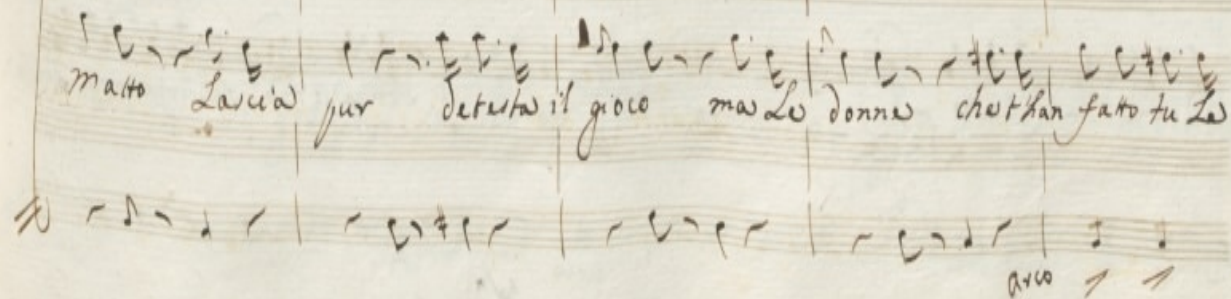 matto Lascia pur detesta il gioco ma Le donne che t'han fatto tu La
arco